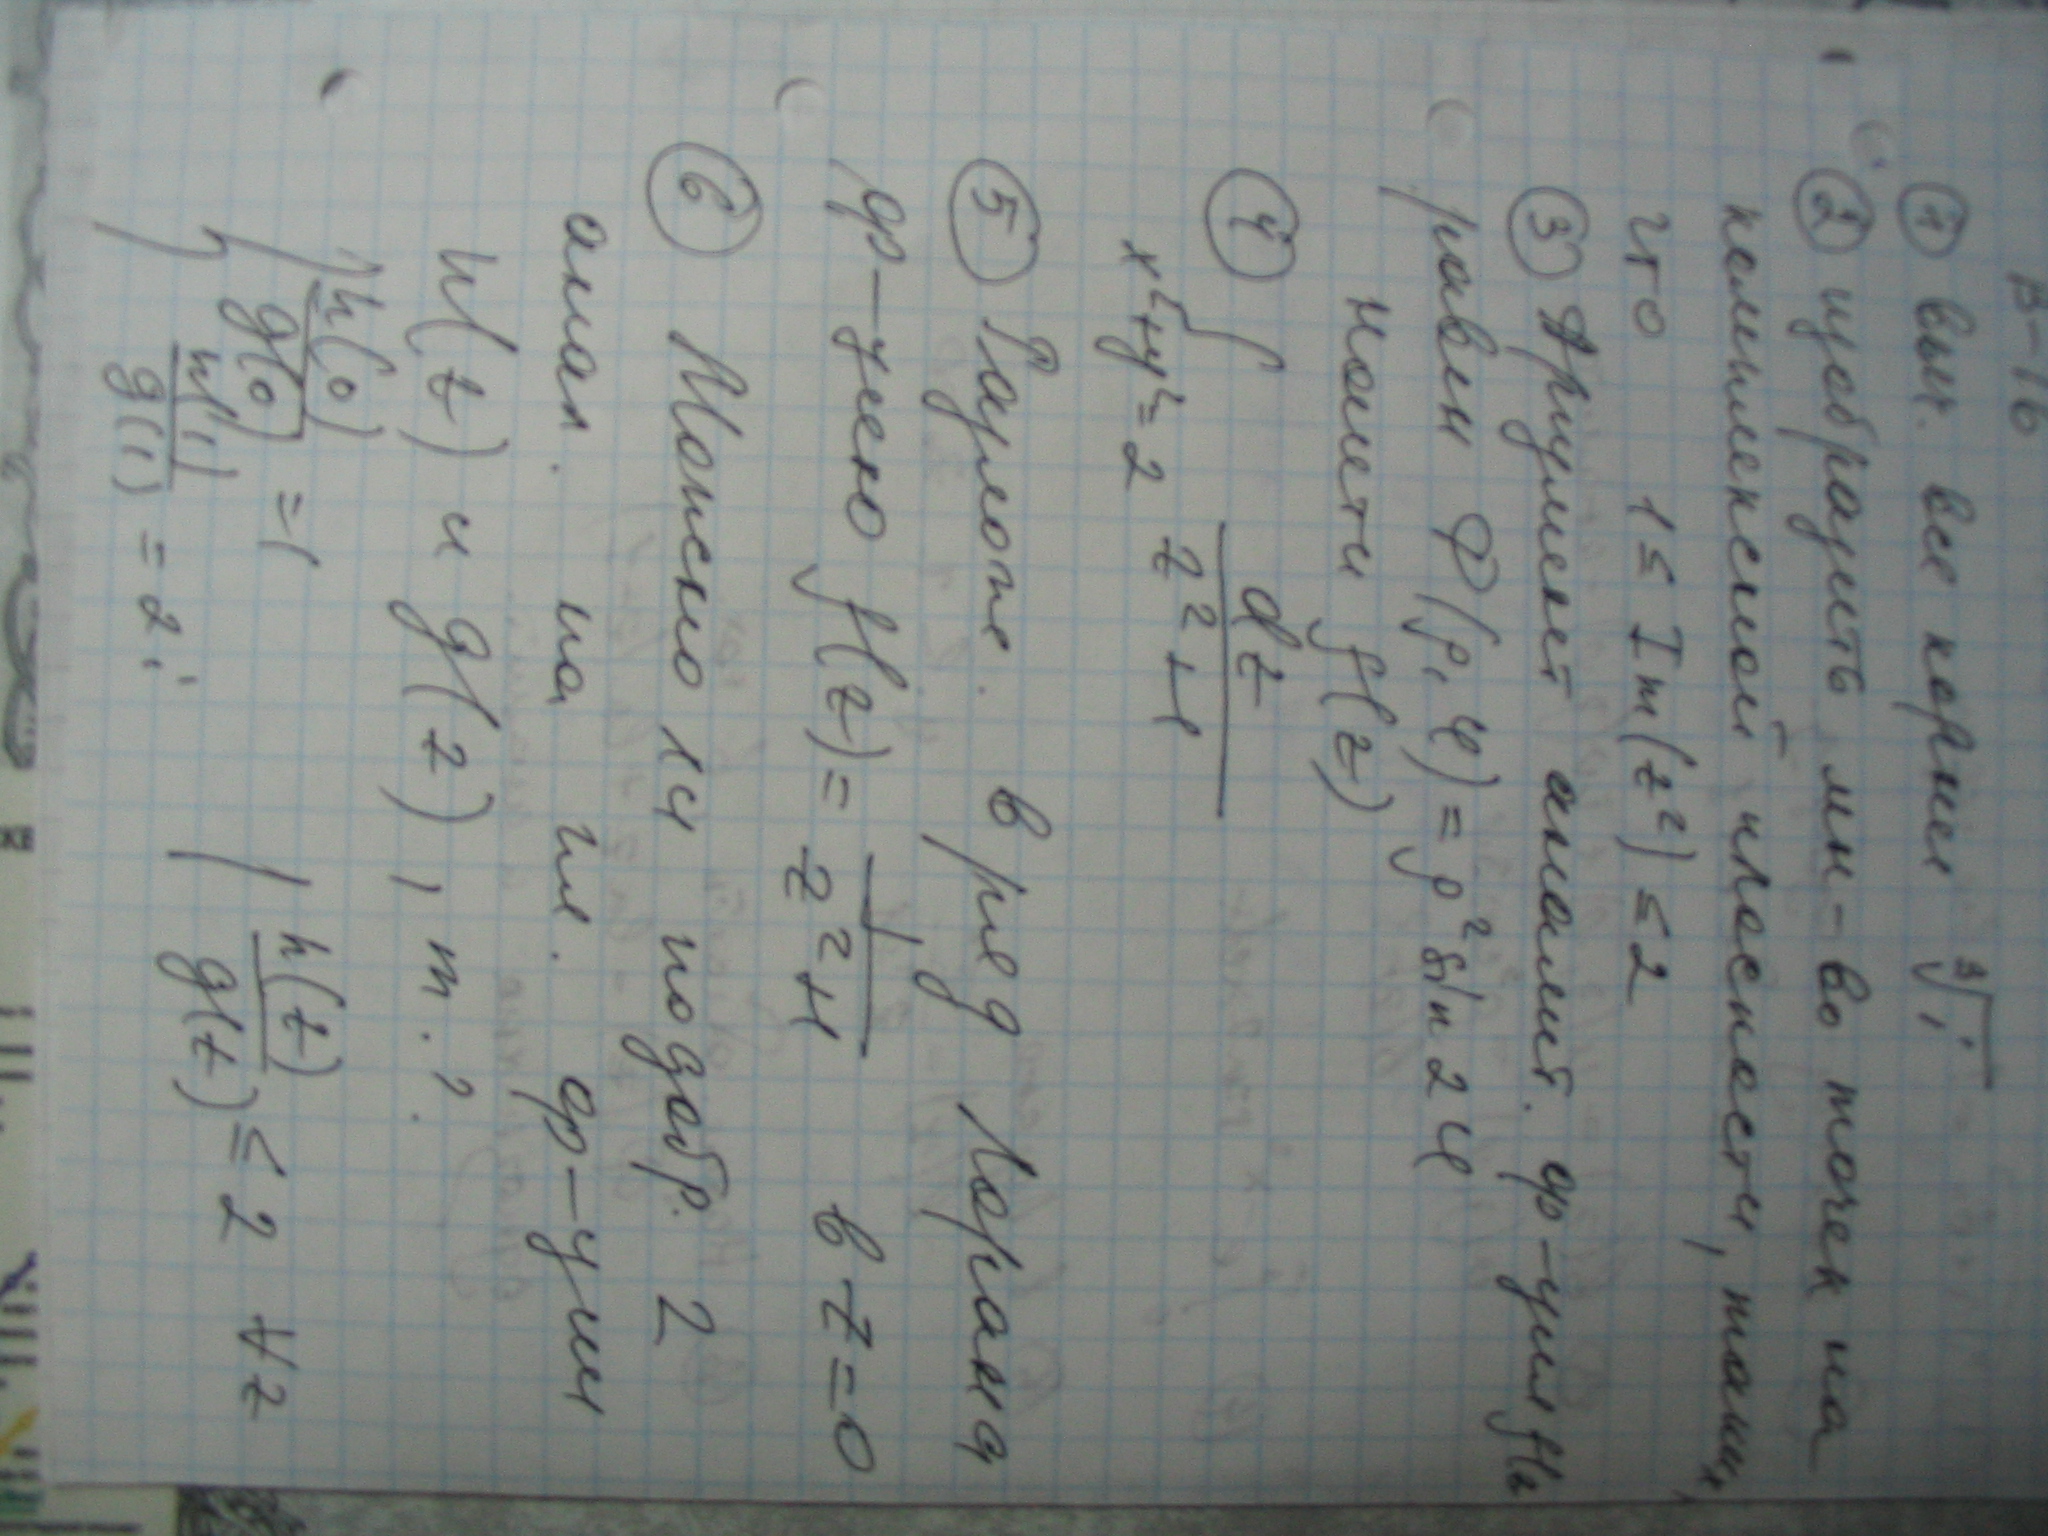 В-16
① выч. все корни ∛i
② изобразить мн-во точек на
комплексной плоскости, таких,
что 1 ≤ Im(z²) ≤ 2
③ Аргумент аналит. ф-ции f(z)
равен Φ(ρ, φ) = ρ² sin 2φ
Найти f(z)
④ ∫ dz / z²+1
x²+y²=2
⑤ Разлож. в ряд Лорана
ф-цию f(z) = 1 / z²+1 в z=0
⑥ Можно ли подобр. 2
анал. на пл. ф-ции
h(z) и g(z), т.?
h(0) / g(0) = 1
h(i) / g(i) = 2i
h(z) / g(z) ≤ 2 ∀z